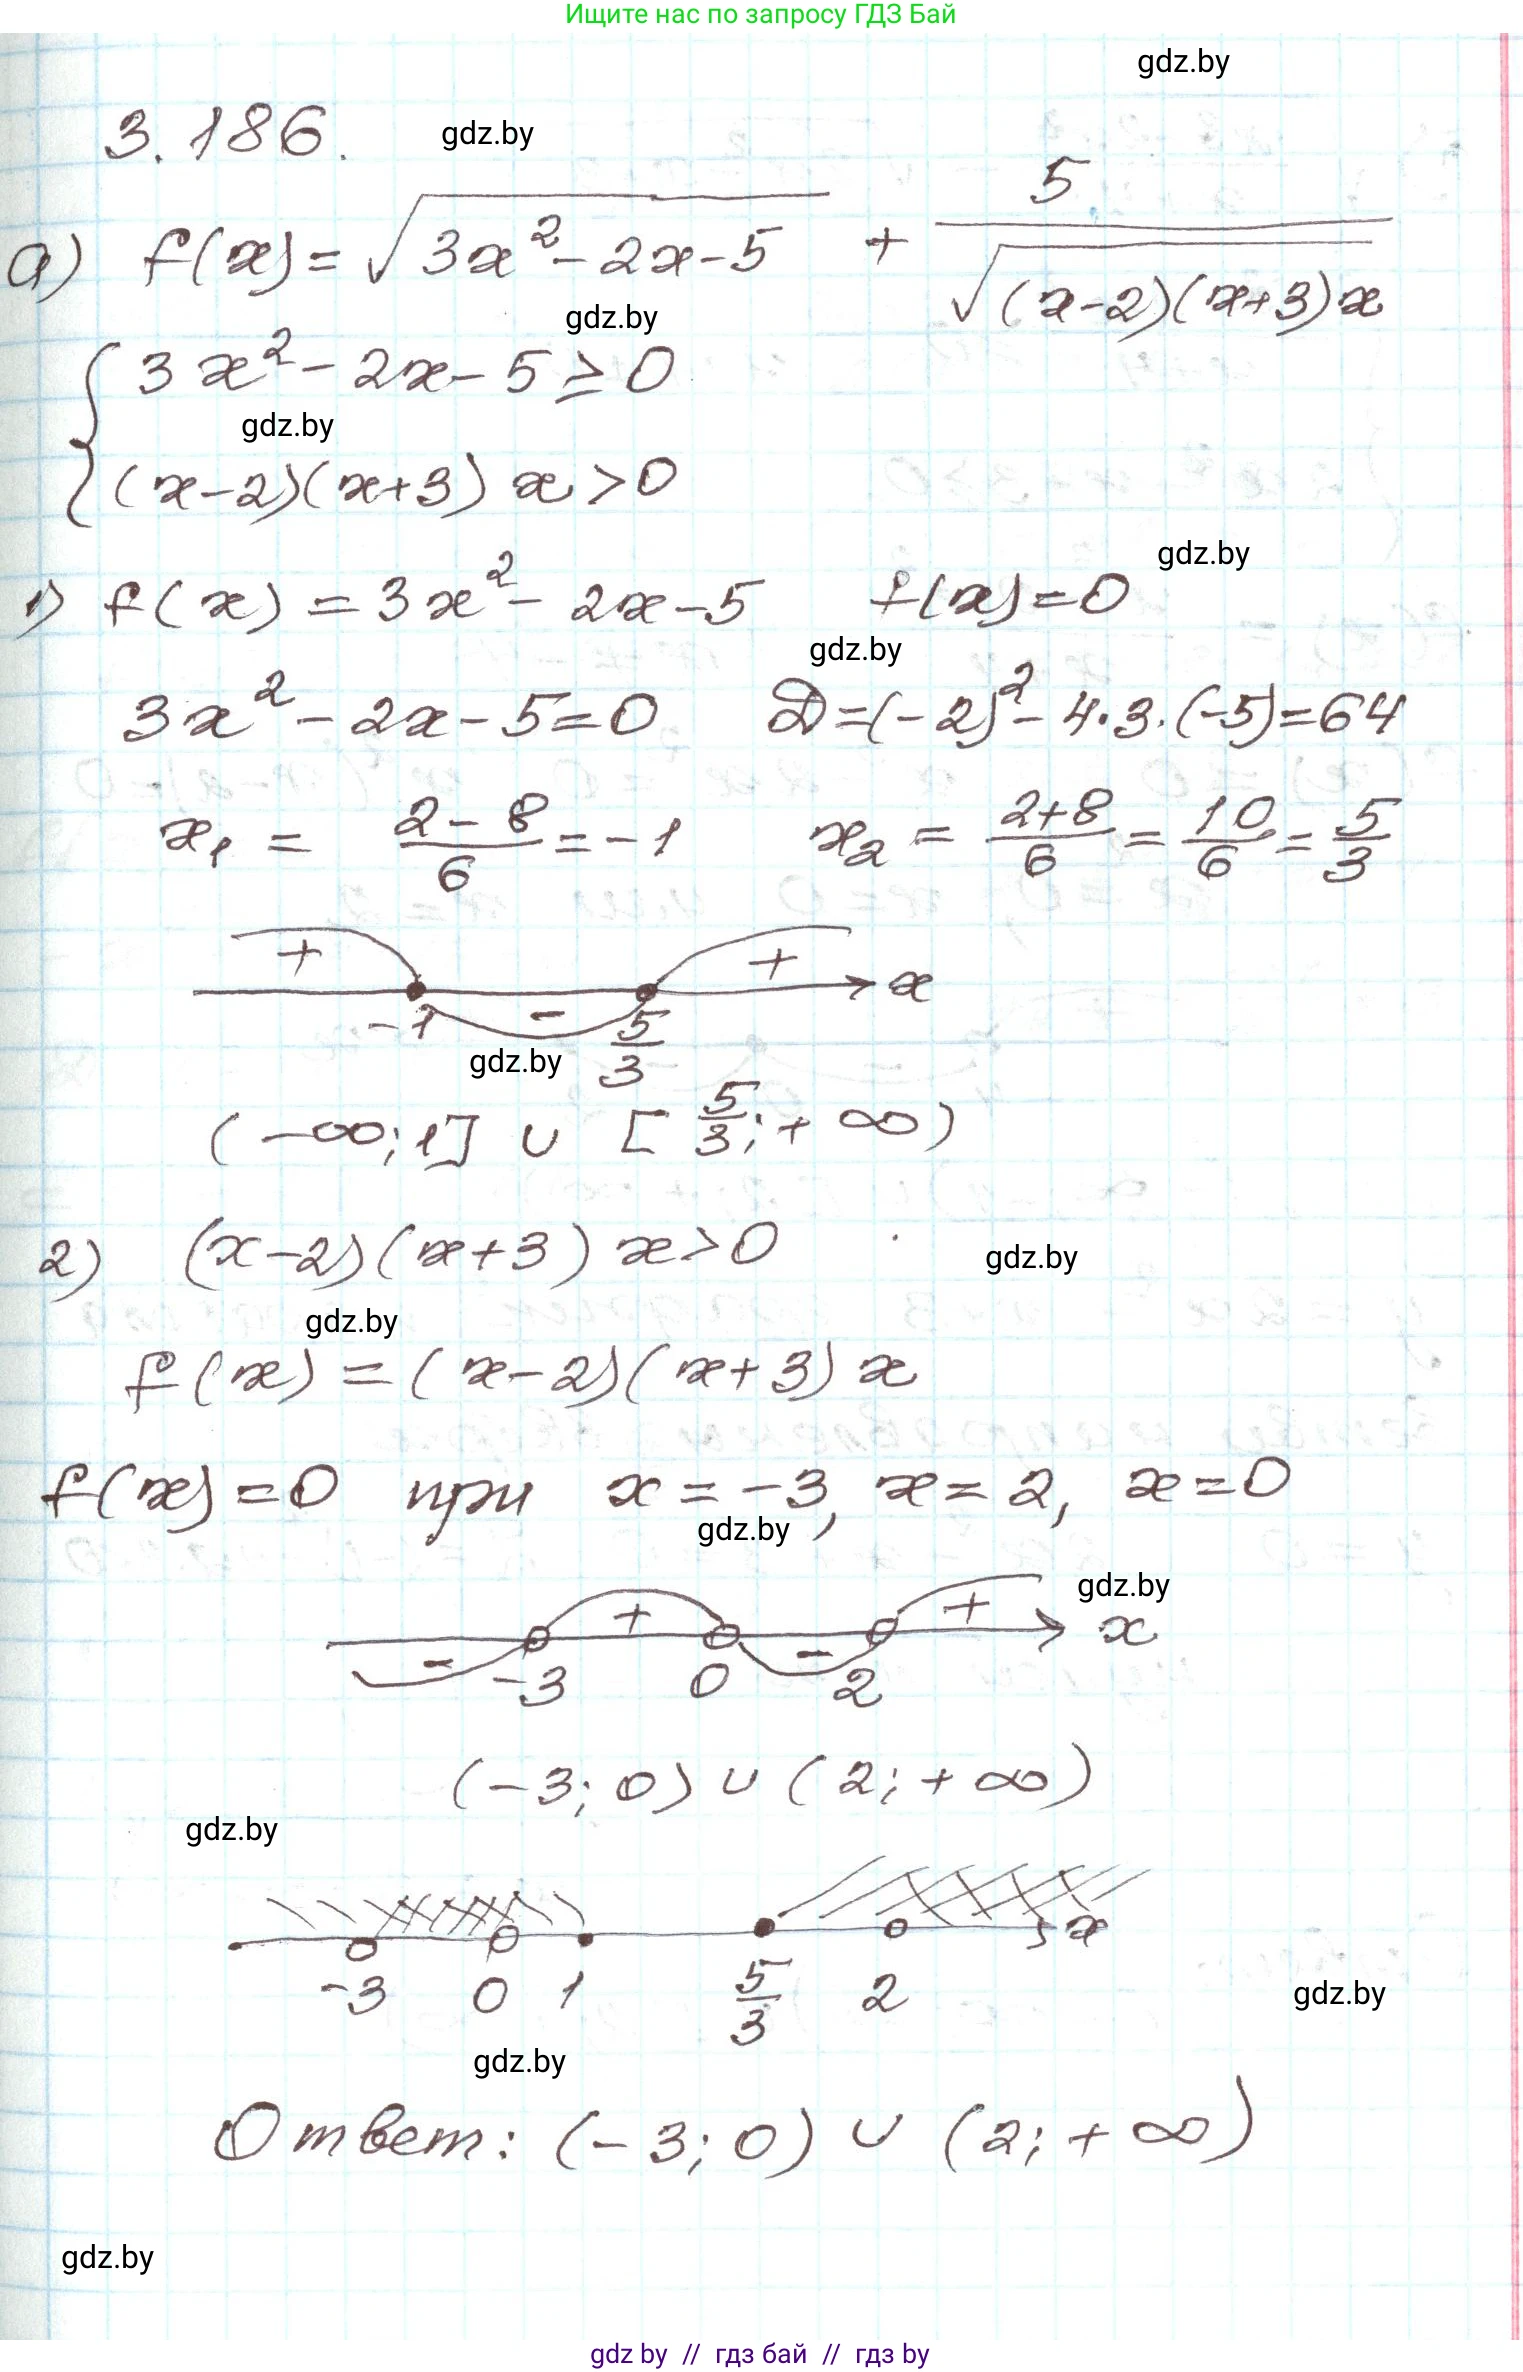 Ищите нас по запросу ГДЗ Бай
gdz.by
3.186.
gdz.by
а) f(x) = √(3x² - 2x - 5) + 5/√((x-2)(x+3)x)
gdz.by
{ 3x² - 2x - 5 ≥ 0
gdz.by
(x-2)(x+3)x > 0
gdz.by
1) f(x) = 3x² - 2x - 5 f(x) = 0
gdz.by
3x² - 2x - 5 = 0 D = (-2)² - 4·3·(-5) = 64
x₁ = (2-8)/6 = -1 x₂ = (2+8)/6 = 10/6 = 5/3
+ - + x
-1 5/3
gdz.by
(-∞; 1] ∪ [5/3; +∞)
2) (x-2)(x+3)x > 0
gdz.by
gdz.by
f(x) = (x-2)(x+3)x
f(x) = 0 при x = -3, x = 2, x = 0
gdz.by
gdz.by
- + - + x
-3 0 2
(-3; 0) ∪ (2; +∞)
gdz.by
x
-3 0 1 5/3 2
gdz.by
gdz.by
Ответ: (-3; 0) ∪ (2; +∞)
gdz.by
gdz by // гдз бай // гдз by